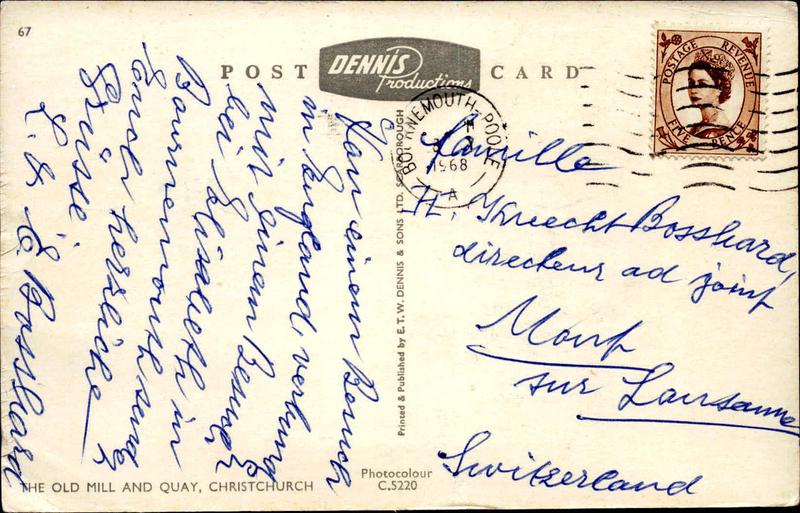 67
POST CARD
DENNIS
Productions
POSTAGE REVENUE
FIVE PENCE
BOURNEMOUTH-POOLE
1968
A
Von einem Besuch
in England, verbund
mit einem Besuch
bei Elisabeth in
Bournemouth send
Euch herzliche
Grüsse.
L. & E. Bosshard
Printed & Published by E.T.W. DENNIS & SONS LTD. SCARBOROUGH
Famille
H. Knecht Bosshard,
directeur ad joint
Mont
sur Lausanne
Switzerland
THE OLD MILL AND QUAY, CHRISTCHURCH
Photocolour
C.5220